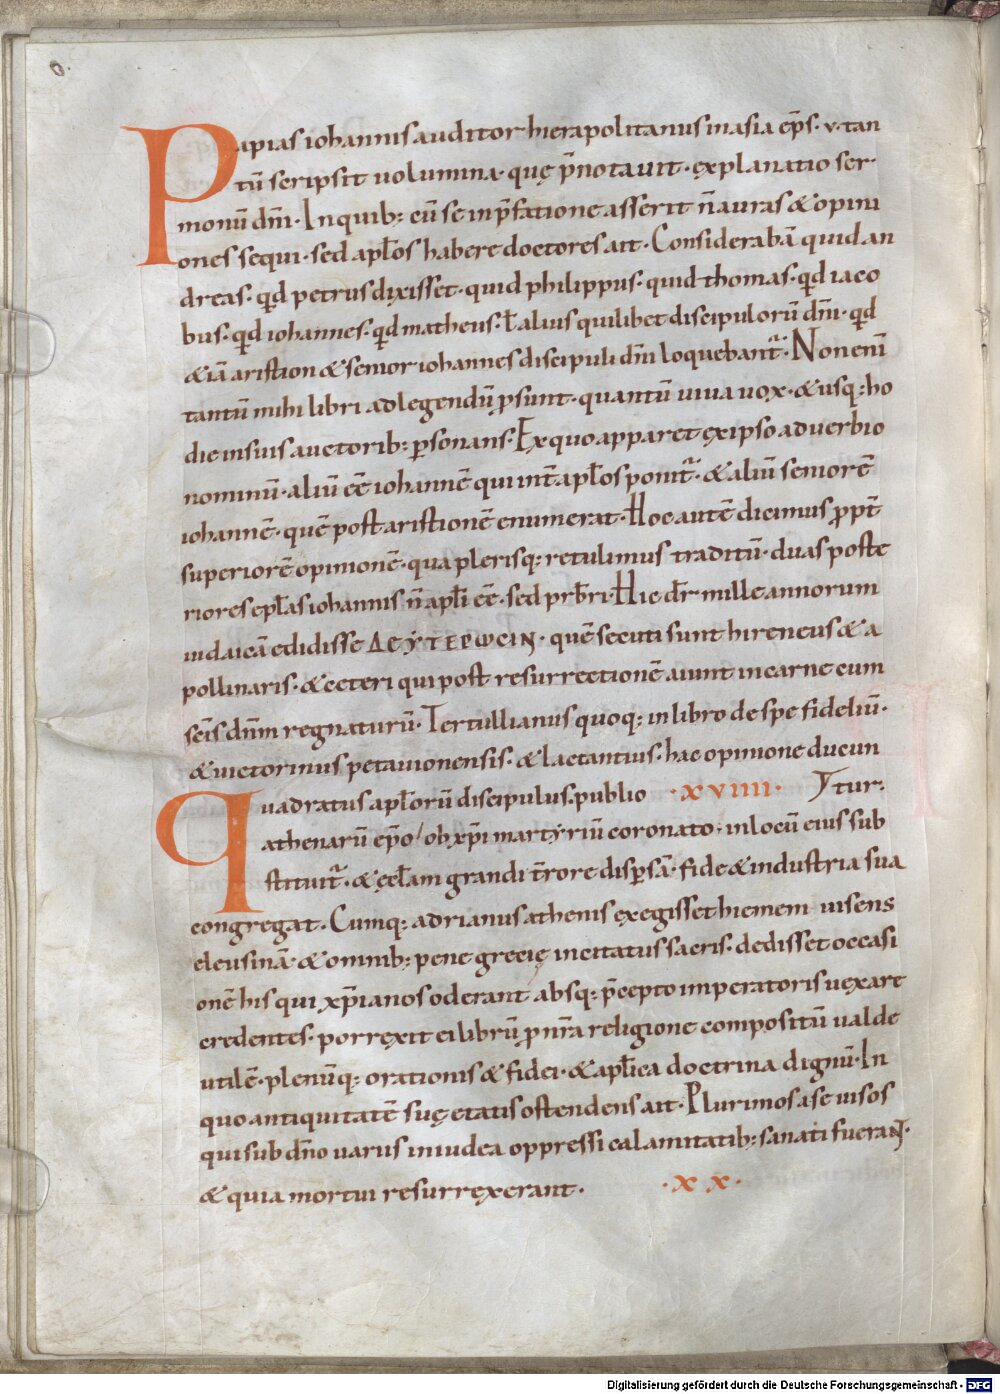 Papias iohannis auditor hierapolitanus in asia ep̄s · v · tan
tū scripsit uolumina · quę p̄notauit · explanatio ser·
monū dn̄i · In quib; cū se in p̄fatione asserit n̄ auras & opini
ones sequi · sed apl̄os habere doctores ait · Considerabā quid an
dreas · qd petrus dixisset · quid philippus · quid thomas · qd iaco
bus · qd iohannes · qd matheus · ł alius quilibet discipulorū dn̄i · qd
& iā aristion & senior iohannes discipuli dn̄i loquebant̄ · Non enī
tantū mihi libri ad legendū ꝓsunt · quantū uiua uox · & usq; ho
die in suis auctorib; ꝑsonans · Ex quo apparet ex ipso aduerbio
nominū · aliū ēē iohannē qui int̄ apl̄os ponit̄ · & aliū seniorē
iohannē · quē post aristionē enumerat · Hoc autē dicimus ꝓpt̄
superiorē opinionē · qua plerisq; retulimus traditū · duas poste
riores epl̄as iohannis n̄ apl̄i ēē · sed prb̄ri · Hic dr̄ mille annorum
iudaicā edidisse ΔΕΥΤΕΡωCΙΝ · quē secuti sunt hireneus & a
pollinaris · & ceteri qui post resurrectionē aiunt in carne cum
sc̄is dn̄m regnaturū · Tertullianus quoq; in libro de spe fideliū ·
& uictorinus petauionensis · & lactantius · hac opinione ducun
quadratus apl̄orū discipulus · publio · xviiii · tur·
athenarū ep̄o / ob xp̄i martyriū coronato · in locū eius sub
stituit̄ · & eccl̄am grandi t̄rore disꝑsā · fide & industria sua
congregat · Cumq; adrianus athenis exegisset hiemem uisens
eleusinā · & omnib; pene grecię incitatus sacris · dedisset occasi
onē his qui xp̄ianos oderant absq; p̄cepto imperatoris uexare
credentes · porrexit ei librū ꝓ nr̄a religione compositū ualde
utilē · plenūq; orationis & fidei · & apl̄ica doctrina dignū · In
quo antiquitatē suę etatis ostendens ait · Plurimos a se uisos
qui sub dn̄o uarus in iudea oppressi calamitatib; sanati fuerant ·
& quia mortui resurrexerant · · x x ·
Digitalisierung gefördert durch die Deutsche Forschungsgemeinschaft - DFG